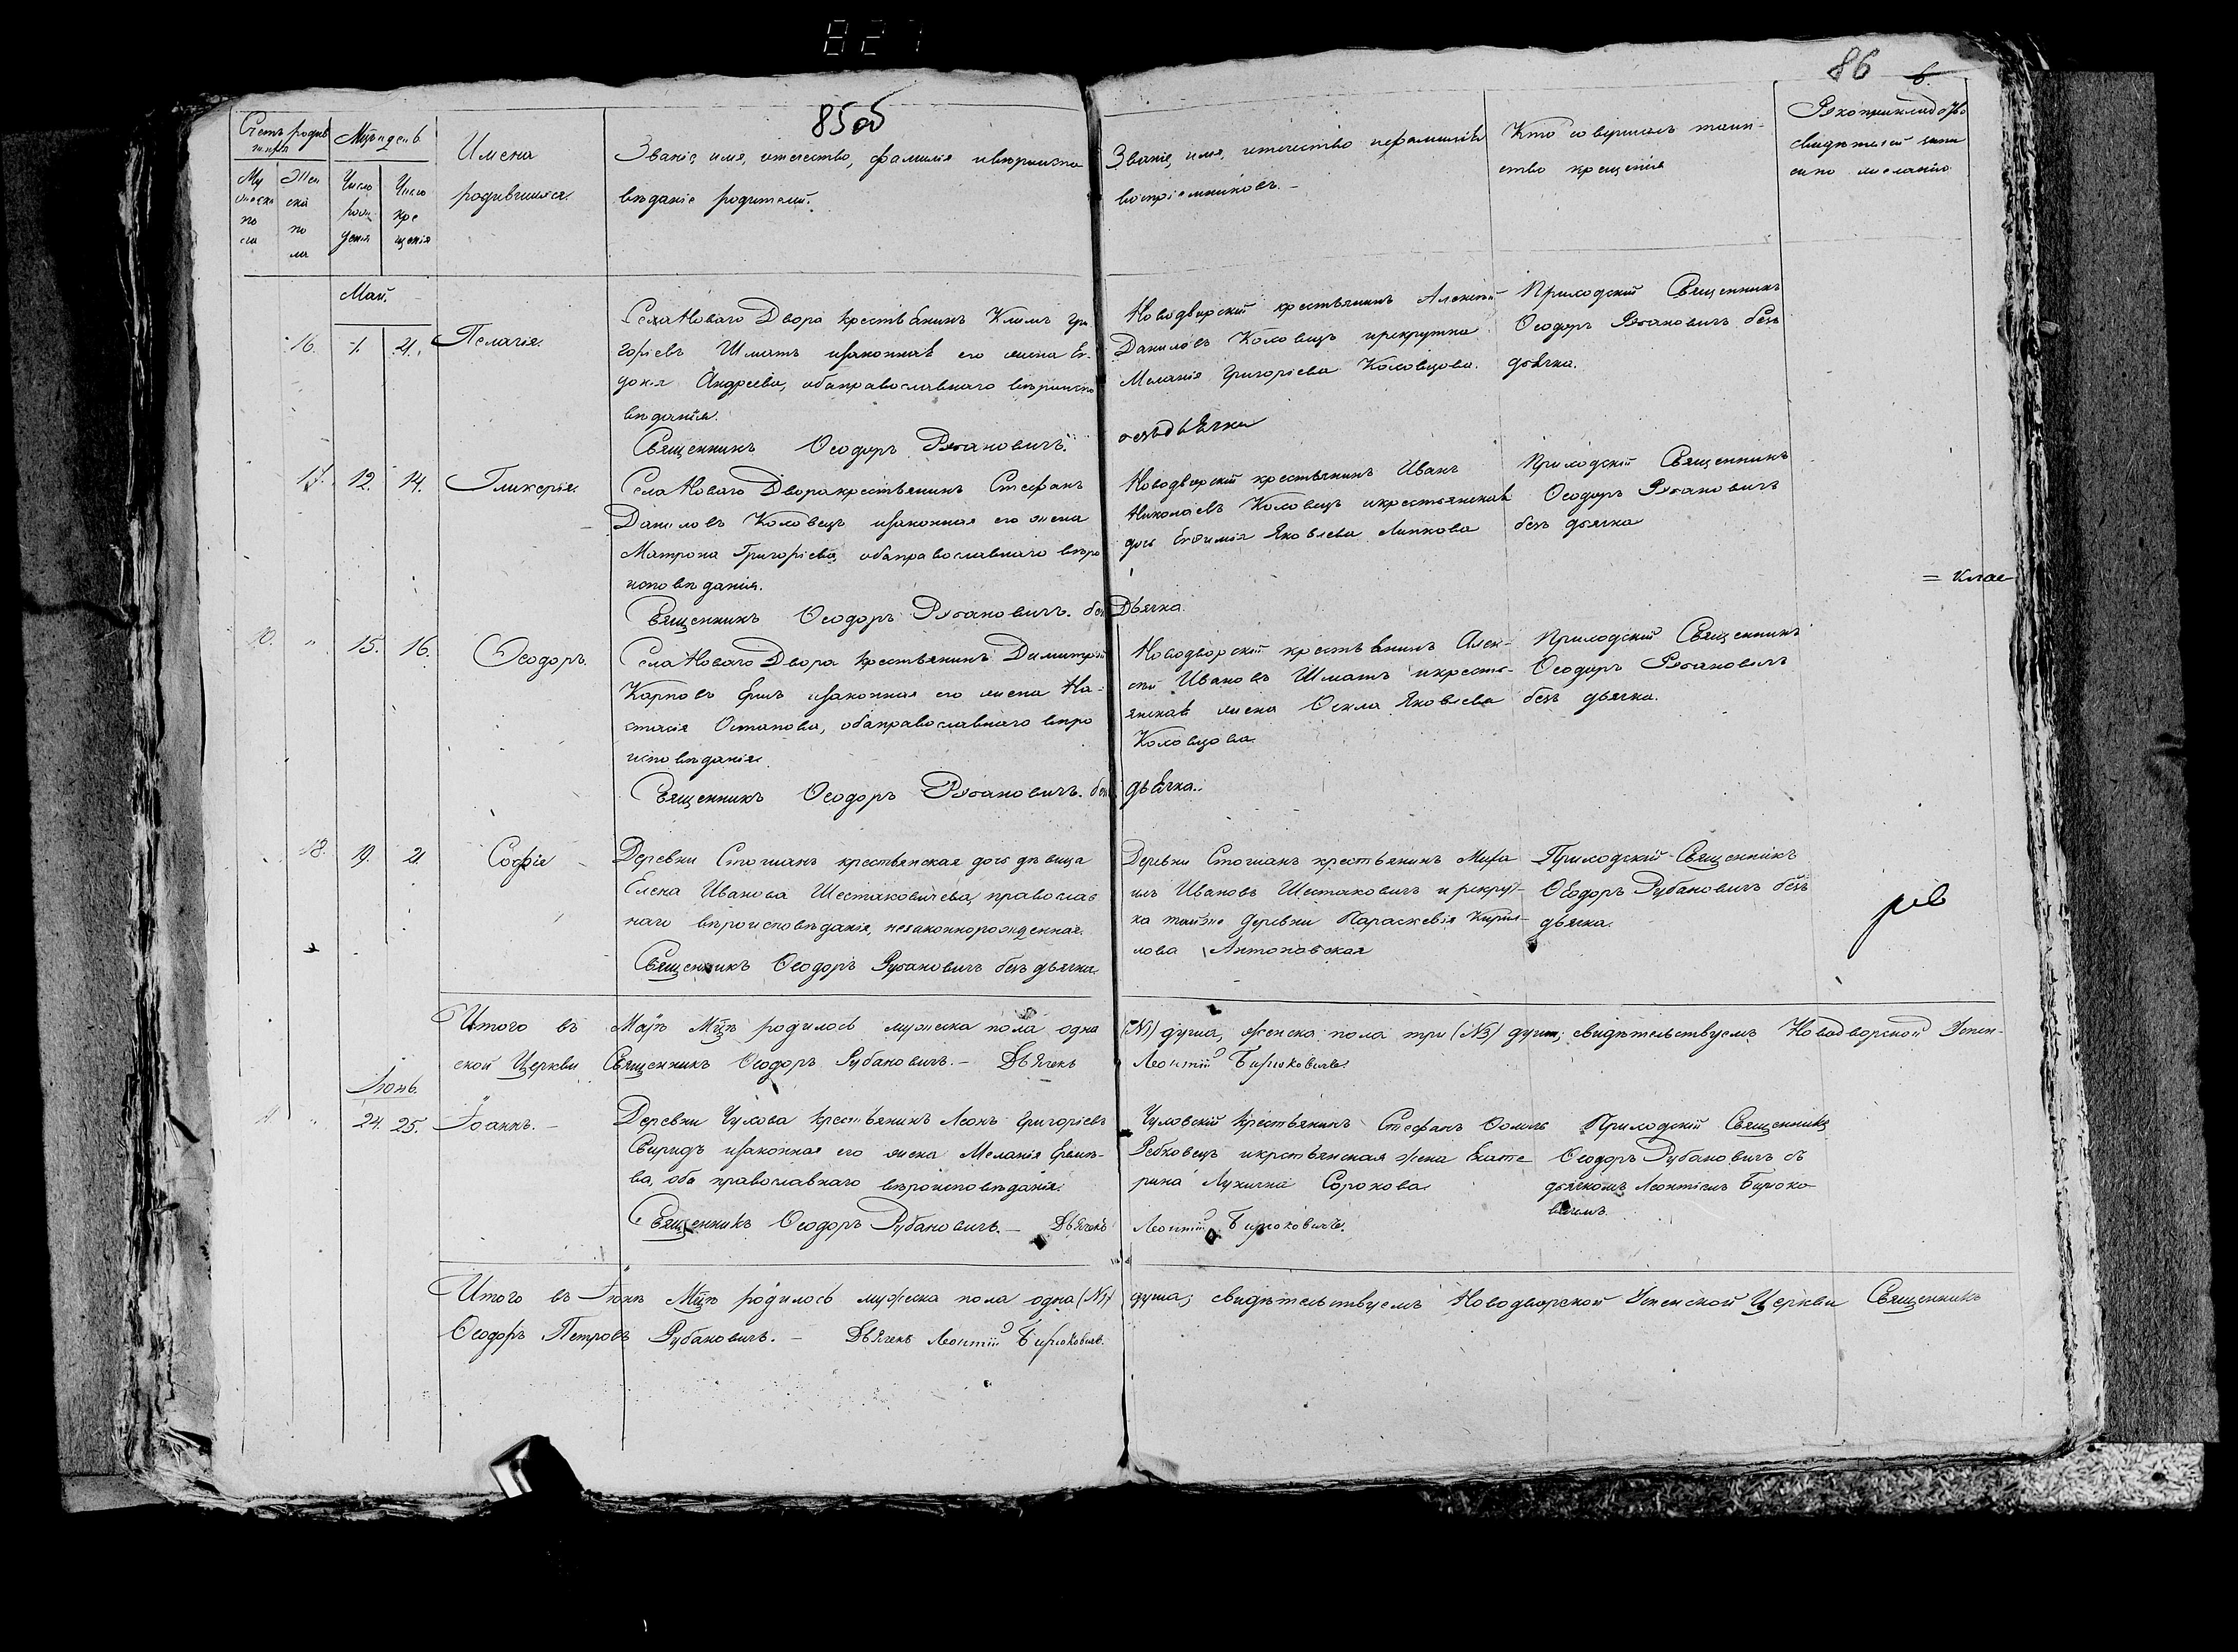 827
85 об
86
Счетъ родив
шихся
Мѣсяцъ и день
Му
жеска
по
ла
Жен
ска
по
ла
Число
рож
денія
Число
кре
щенія
Имена
родившихся.
Званіе, имя, отчество, фамилія и вѣроиспо
вѣданіе родителей.
Званіе, имя, отчество и фамилія
воспріемниковъ.
Кто совершалъ таин-
ство крещенія
свидѣтелей запи
си по желанію
Май.
16. 1. 4. Пелагія.
Села Новаго Двора крестьянинъ Климъ Гри
горіевъ Шматъ и законная его жена Ев-
докія Андреева, оба православнаго вѣроиспо
вѣданія.
Священникъ Ѳеодоръ Рубановичъ.
Новодворскій крестьянинъ Алексѣй
Даниловъ Коловецъ и рекрутка
Меланія Григоріева Коловцова.
безъ дьячка
Приходскій Священникъ
Ѳеодоръ Рубановичъ безъ
дьячка.
17. 12. 14. Гликерія.
Села Новаго Двора крестьянинъ Стефанъ
Даниловъ Коловецъ и законная его жена
Матрона Григоріева, оба православнаго вѣро
исповѣданія.
Священникъ Ѳеодоръ Рубановичъ. безъ Дьячка.
Новодворскій крестьянинъ Иванъ
Николаевъ Коловецъ и крестьянская
дочь Евфимія Яковлева Липкова
Приходскій Священникъ
Ѳеодоръ Рубановичъ
безъ дьячка
10. " 15. 16. Ѳеодоръ.
Села Новаго Двора крестьянинъ Димитрій
Карповъ и законная его жена На-
стасія Остапова, оба православнаго вѣро
исповѣданія.
Священникъ Ѳеодоръ Рубановичъ. безъ дьячка.
Новодворскій крестьянинъ Алек-
сѣй Ивановъ Шматъ и кресть-
янская жена Ѳекла Яковлева
Коловцова.
Приходскій Священникъ
Ѳеодоръ Рубановичъ
безъ дьячка.
18. 19. 21 Софія
Деревни Стошанъ крестьянская дочь дѣвица
Елена Иванова Шестаковичева, православ
наго вѣроисповѣданія, незаконнорожденная.
Священникъ Ѳеодоръ Рубановичъ безъ дьячка.
Деревни Стошанъ крестьянинъ Миха
илъ Ивановъ Шестаковичъ и рекрут-
ка тойже деревни Параскевія Кири-
лова Антоновская
Приходскій Священникъ
Ѳеодоръ Рубановичъ безъ
дьячка.
Итого въ Маѣ Мцѣ родилось мужеска пола одна (№1) душа, женска пола три (№3) души; свидѣтельствуемъ Новодворской Успен-
ской Церкви Священникъ Ѳеодоръ Рубановичъ. – Дьячекъ Леонтій Бирюковичъ.
Іюнь.
11. " 24. 25. Іоаннъ. –
Деревни Чухова крестьянинъ Леонъ Григоріевъ
Свиридъ и законная его жена Меланія
ва, оба православнаго вѣроисповѣданія.
Священникъ Ѳеодоръ Рубановичъ. – Дьячекъ Леонтій Бирюковичъ.
Чуховскій крестьянинъ Стефанъ Ѳоминъ
Ребковецъ и крестьянская жена Екате
рина Лукична Сорокова.
Приходскій Священникъ
Ѳеодоръ Рубановичъ съ
дьячкомъ Леонтіемъ Бирюко
вичемъ.
Итого въ Іюнѣ Мцѣ родилось мужеска пола одна (№1) душа; свидѣтельствуемъ Новодворской Успенской Церкви Священникъ
Ѳеодоръ Петровъ Рубановичъ. – Дьячекъ Леонтій Бирюковичъ.